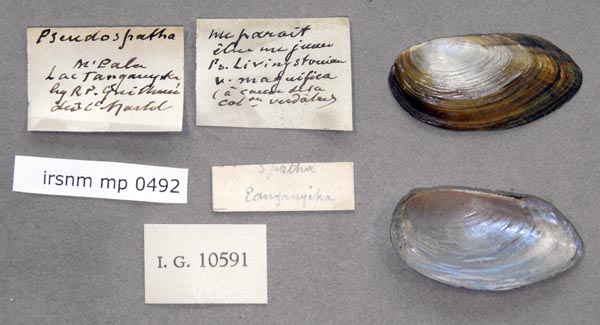 Pseudospatha
M'Pala
Lac Tanganyka
by R.P. Guillemé
me parait
être une jeune
Ps. Livingstoniana
v. magnifica
(à cause de sa
col^on verdâtre)
irsnm mp 0492
Spatha
Tanganyika
I. G. 10591